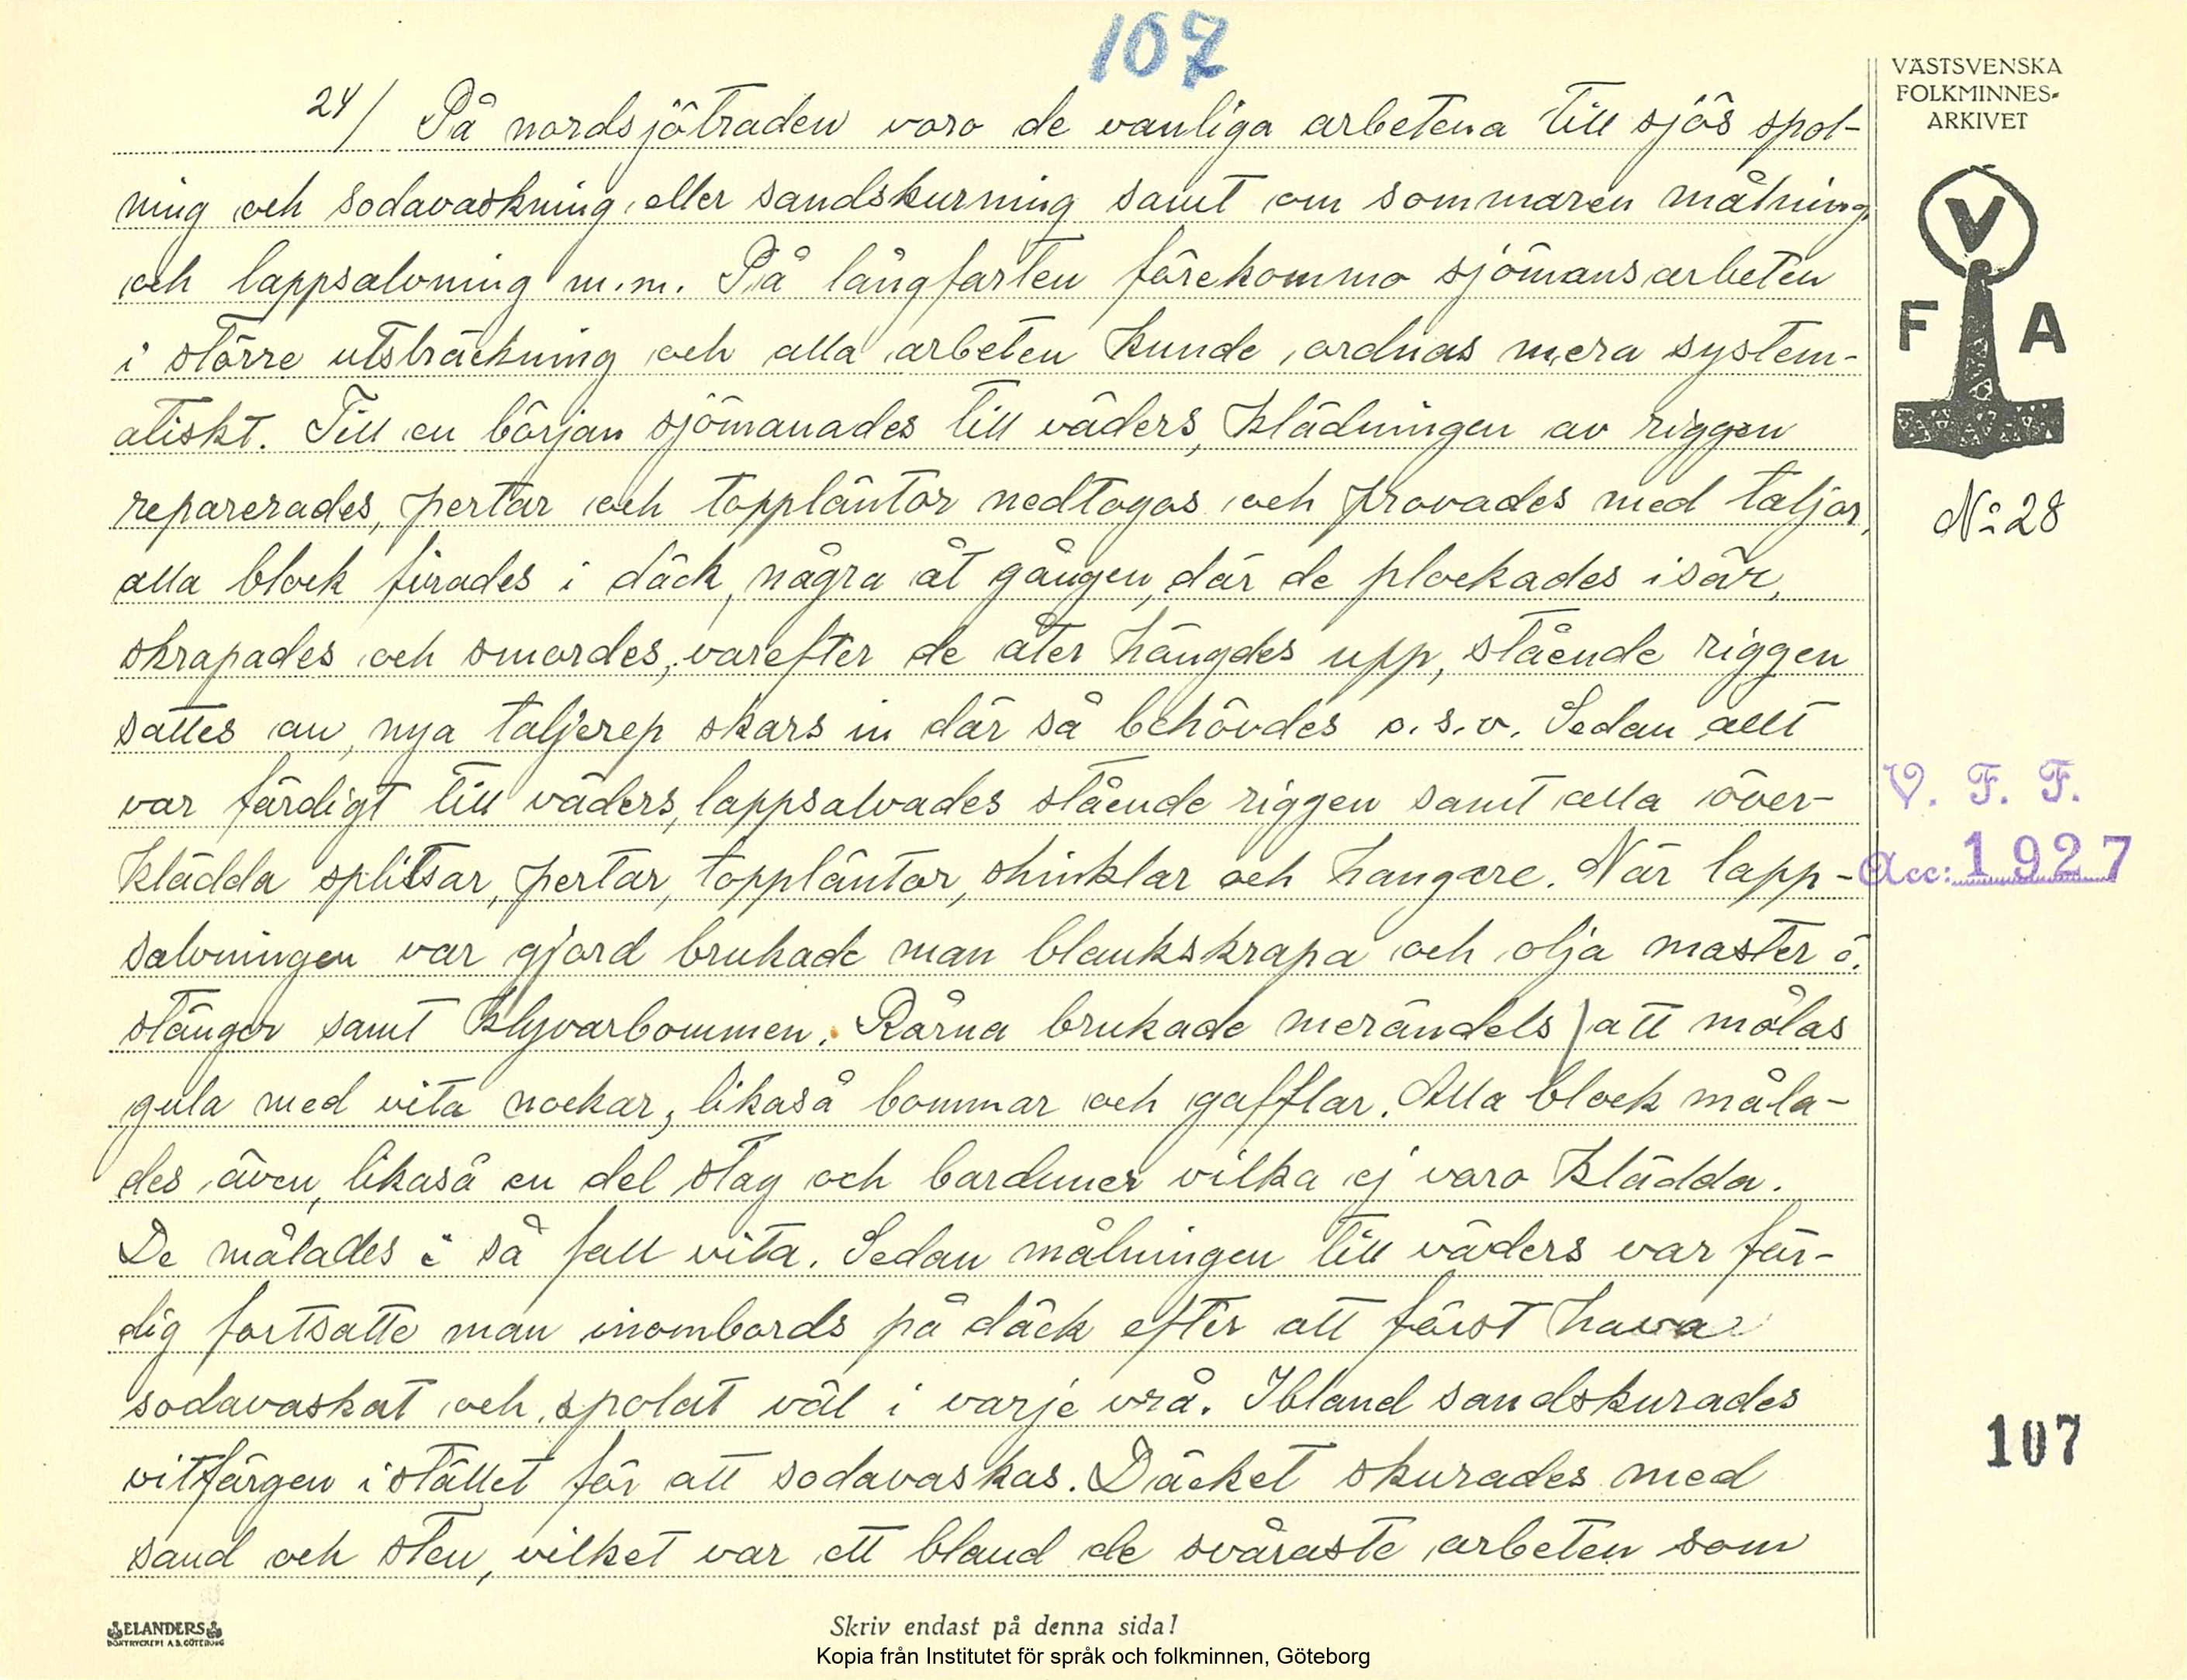 107
24/ På nordsjötraden voro de vanliga arbetena till sjös spol-
ning och sodavaskning eller sandskurning samt om sommaren målning
och lappsalvning m.m. På långfarten förekommo sjömansarbeten
i större utsträckning och alla arbeten kunde ordnas mera system-
atiskt. Till en början sjömanades till väders, klädningen av riggen
reparerades, pertar och toppläntor nedtogos och provades med taljor,
alla block firades i däck, några åt gången, där de plockades isär,
skrapades och smordes, varefter de åter hängdes upp, stående riggen
sattes an, nya taljerep skars in där så behövdes o.s.v. Sedan allt
var färdigt till väders, lappsalvades stående riggen samt alla över-
klädda splitsar, pertar, toppläntor, skinklar och hangare. När lapp-
salvningen var gjord brukade man blankskrapa och olja master o.
stänger samt klyvarbommen. Rårna brukade merändels att målas
gula med vita nockar, likaså bommar och gafflar. Alla block måla-
des även, likaså en del stag och barduner vilka ej voro klädda.
De målades i så fall vita. Sedan målningen till väders var fär-
dig fortsatte man inombords på däck efter att först hava
sodavaskat och spolat väl i varje vrå. Ibland sandskurades
vitfärgen istället för att sodavaskas. Däcket skurades med
sand och sten, vilket var ett bland de svåraste arbeten som
VÄSTSVENSKA
FOLKMINNES-
ARKIVET
V
F A
No 28
V. F. F.
Acc: 1927
107
ELANDERS
BOKTRYCKERI A.B. GÖTEBORG
Skriv endast på denna sida!
Kopia från Institutet för språk och folkminnen, Göteborg